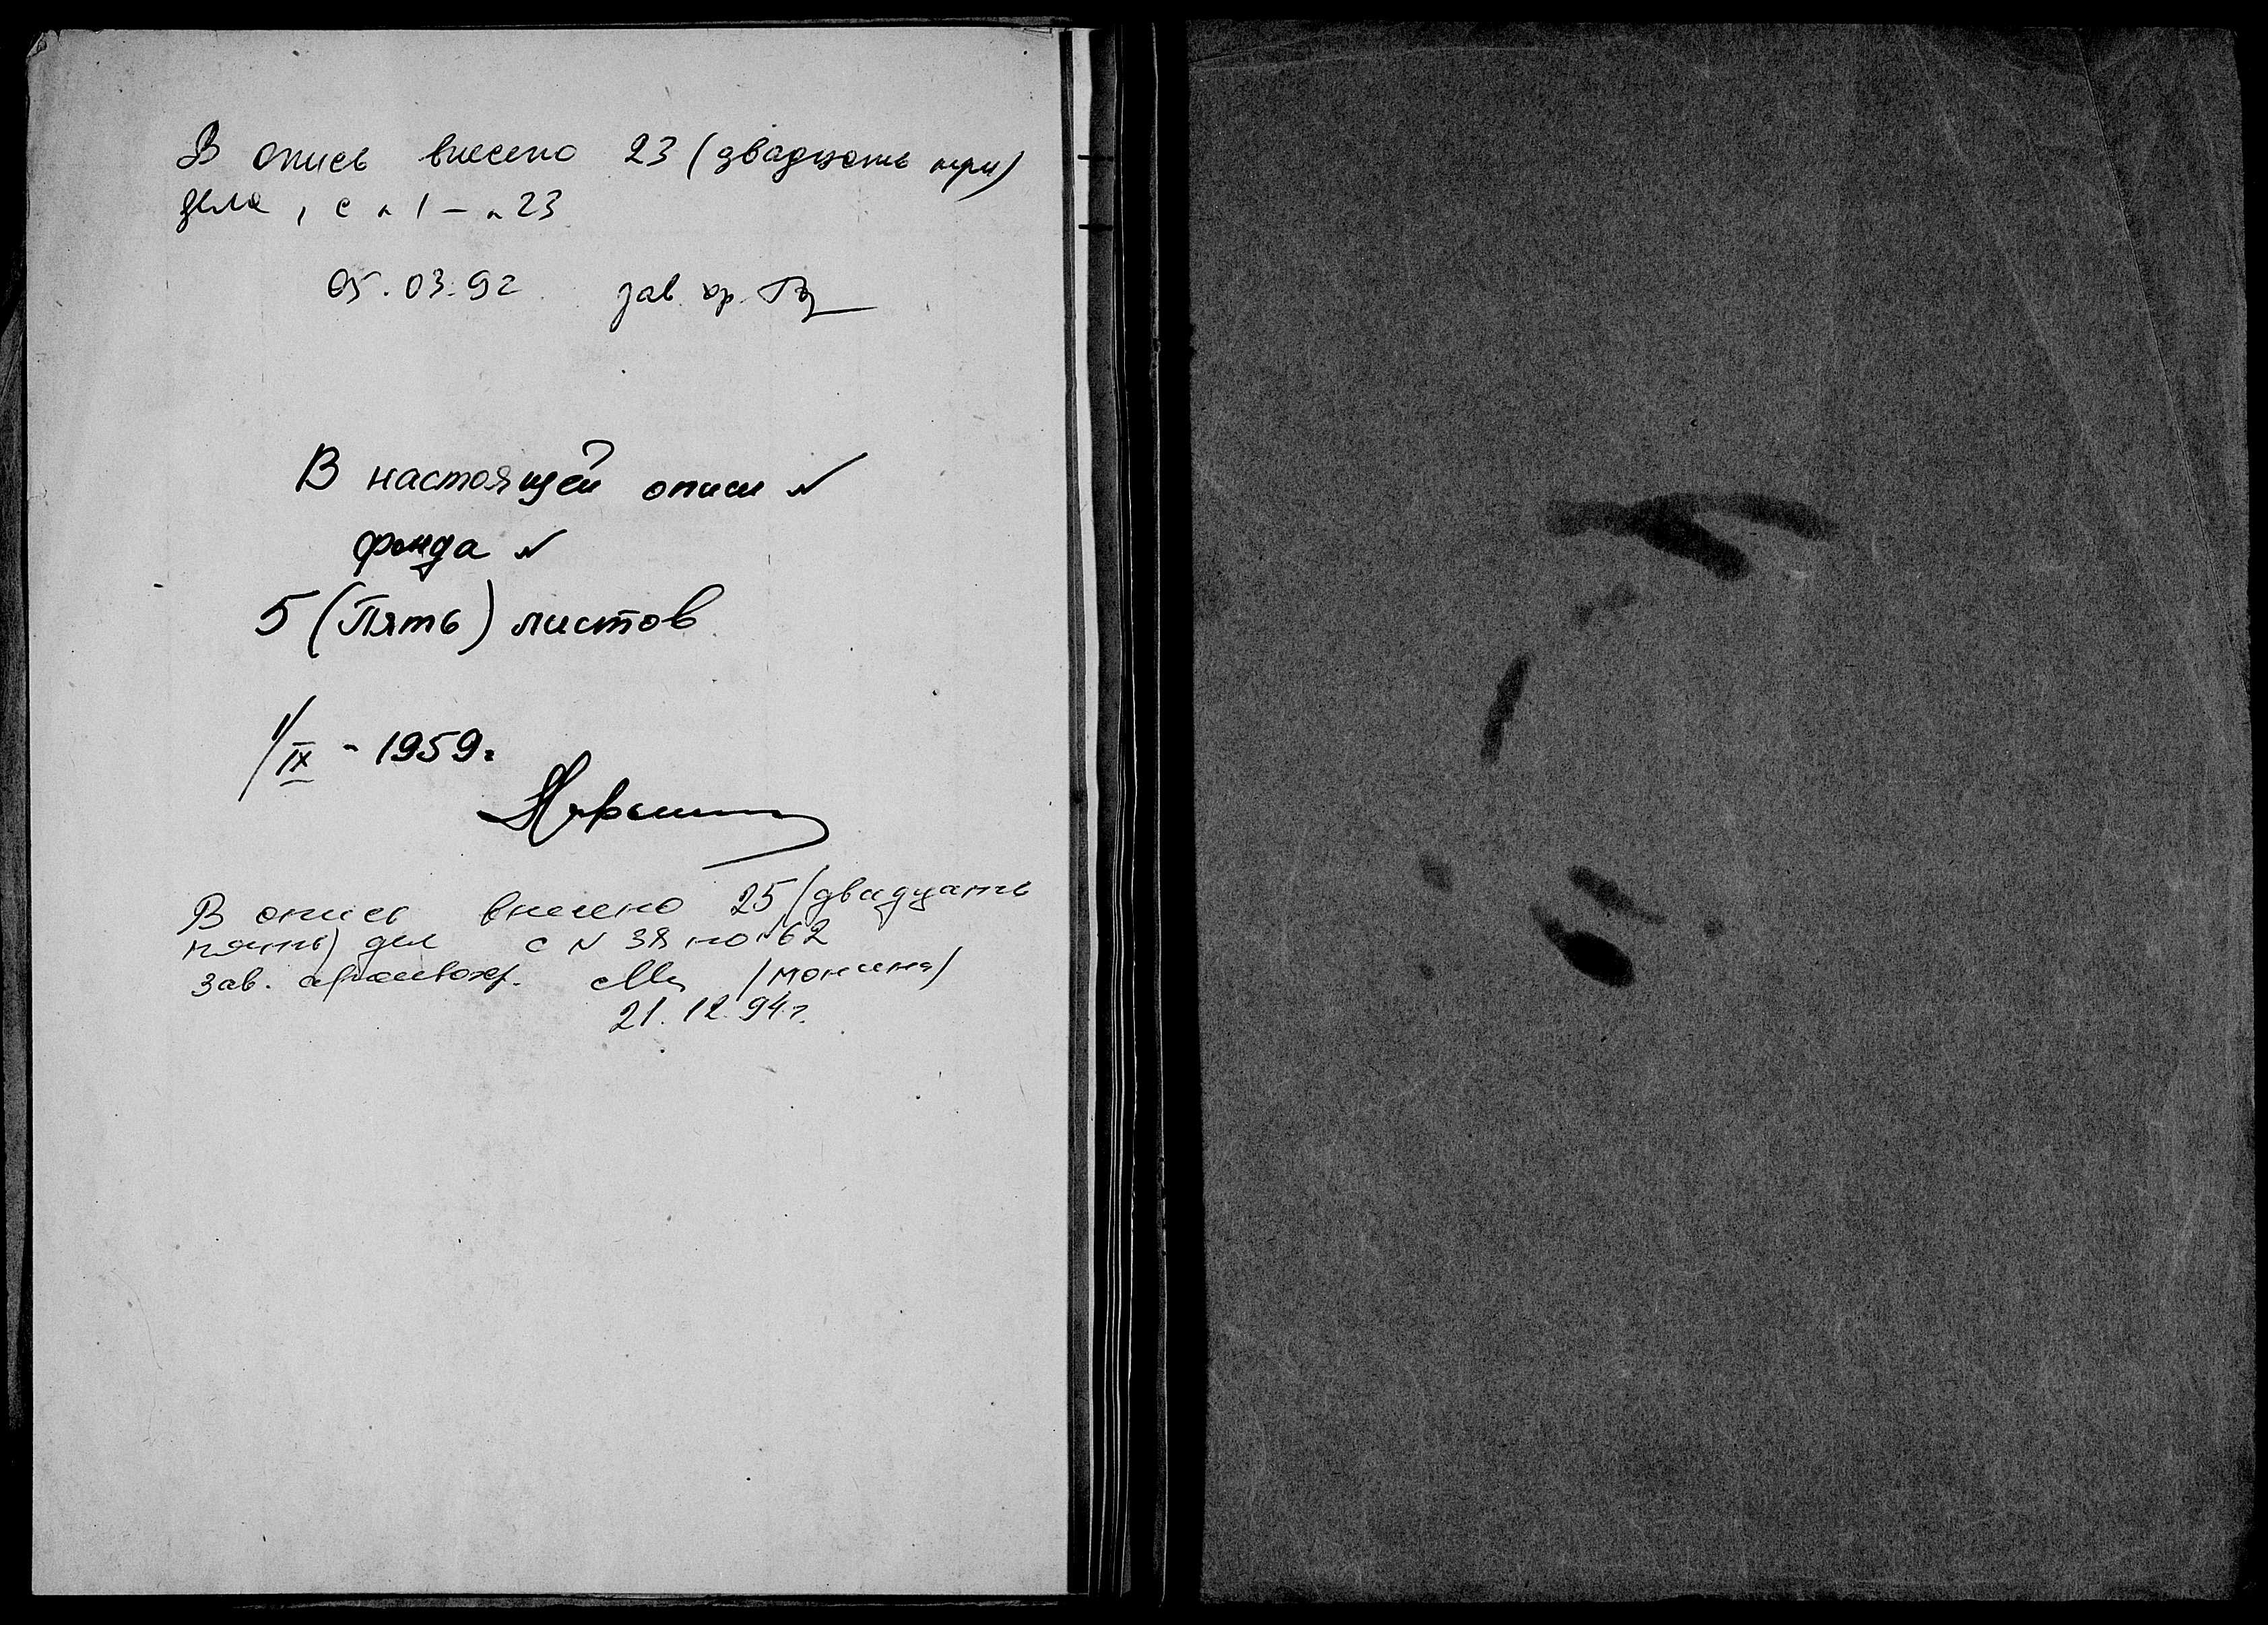 В опись внесено 23 (двадцать три)
дела, с № 1 – № 23
05.03.92 зав. хр.
В настоящей описи №
фонда №
5 (Пять) листов
1/IX - 1959г
В опись внесено 25 (двадцать
пять) дел с № 38 по № 62
Зав. архивохр. /Монина/
21.12.94г.